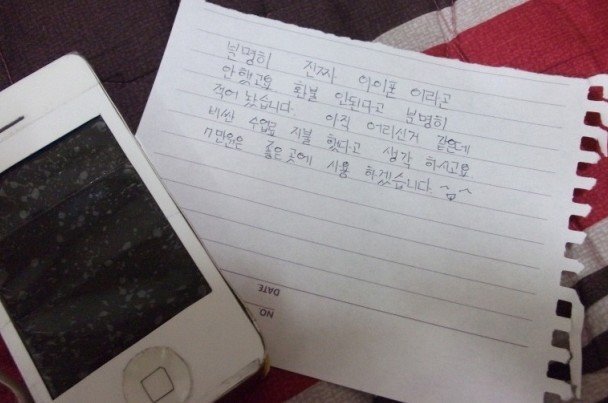 분명히 진짜 아이폰 이라고
안했고요 환불 안된다고 분명히
적어 놨습니다. 아직 어리신거 같은데
비싼 수업료 지불 했다고 생각 하시고요
7만원은 좋은곳에 사용 하겠습니다. ^ㅗ^
DATE
NO.